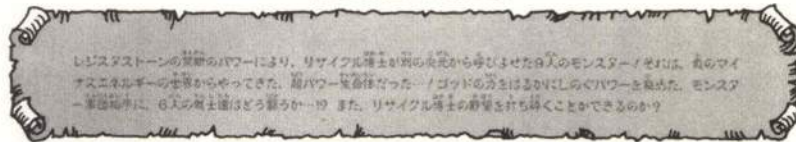 レジスタストーンの驚異のパワーにより、リサイクル博士が別の次元から呼びよせた9人のモンスター!それは、負のマイ
ナスエネルギーの世界からやってきた、超パワー生命体だった…!ゴッドの力をはるかにしのぐパワーを秘めた、モンスタ
ー軍団相手に、6人の戦士達はどう闘うか…!?また、リサイクル博士の野望を打ち砕くことができるのか?